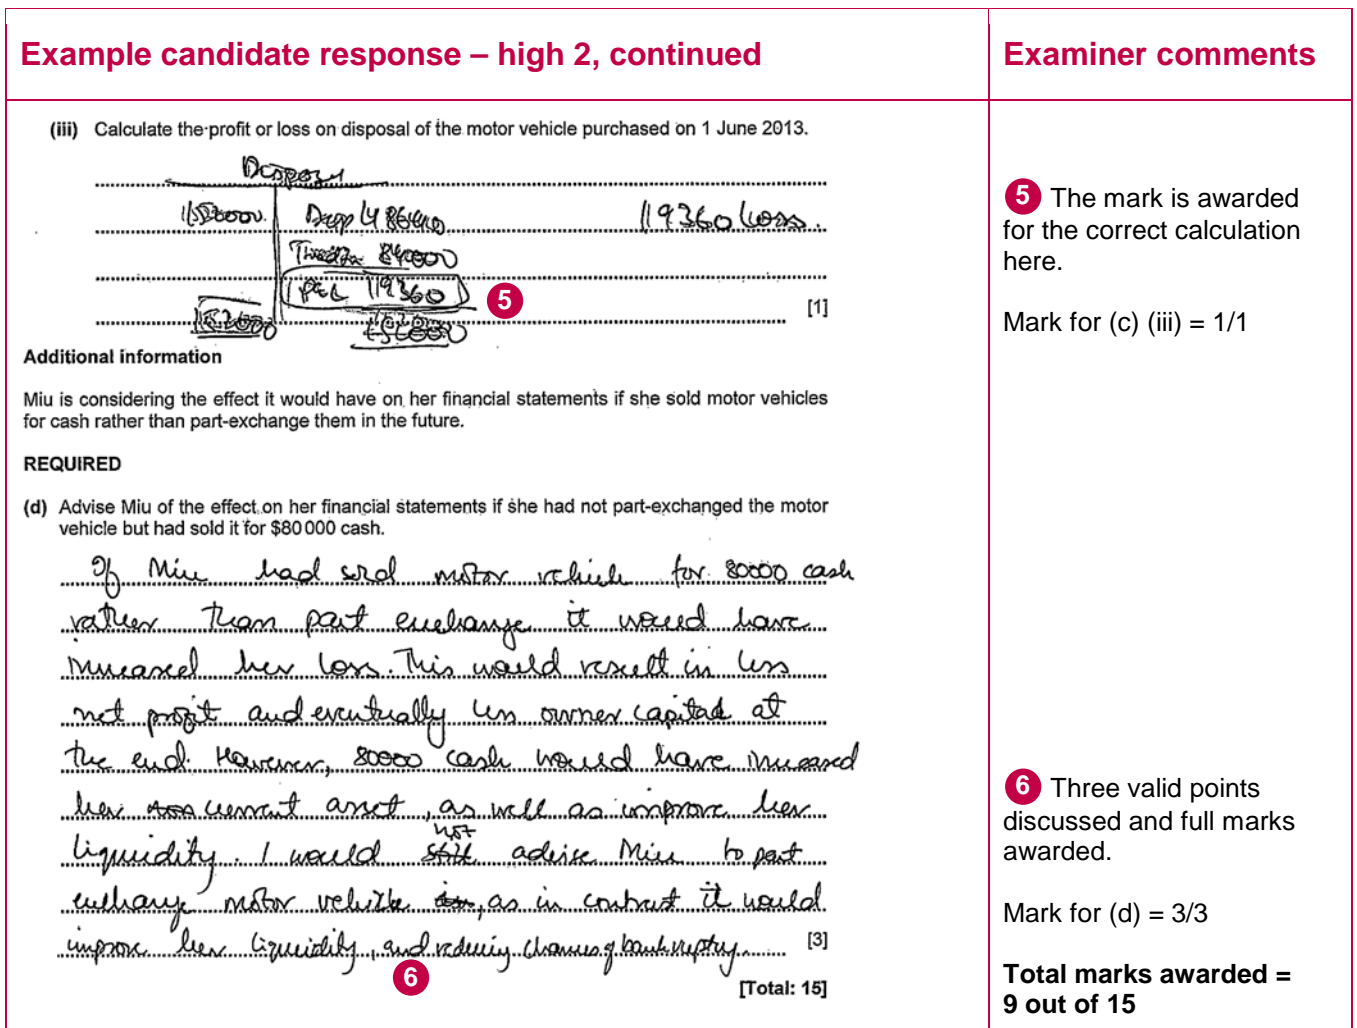 Example candidate response – high 2, continued
Examiner comments
(iii) Calculate the profit or loss on disposal of the motor vehicle purchased on 1 June 2013.
152000 Depn 48640 19360 loss.
84000
P&L 19360 5
152000 152000
[1]
5 The mark is awarded
for the correct calculation
here.
Mark for (c) (iii) = 1/1
Additional information
Miu is considering the effect it would have on her financial statements if she sold motor vehicles
for cash rather than part-exchange them in the future.
REQUIRED
(d) Advise Miu of the effect on her financial statements if she had not part-exchanged the motor
vehicle but had sold it for $80 000 cash.
If Miu had sold motor vehicle for 80000 cash
rather than part exchange it would have
increased her loss. This would result in less
net profit and eventually less owner capital at
the end. However, 80000 cash would have increased
her current asset, as well as improve her
liquidity. I would not advise Miu to part
exchange motor vehicle, as in contrast it would
improve her liquidity, and reducing chances of bankruptcy.
[3]
6
[Total: 15]
6 Three valid points
discussed and full marks
awarded.
Mark for (d) = 3/3
Total marks awarded =
9 out of 15